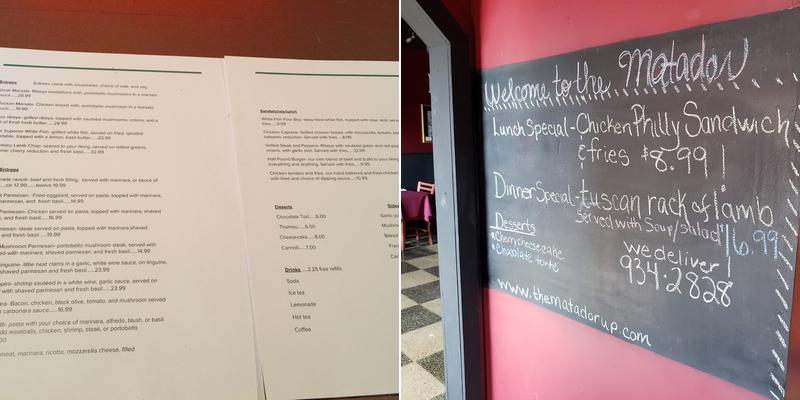 Entrees
Entrees come with soup/salad, choice of side, and veg
Steak Marsala- Ribeye medallions with, portobello mushrooms in a marsala
sauce.....28.99
hicken Marsala- Chicken breast with, portobello mushroom in a marsala
ribeye- grilled ribeye, topped with sauteed mushrooms, onions, and a
of fresh herb butter......28.99
Superior White Fish- grilled white fish, served on rice, sprinkled
topped with a lemon, basil butter.....23.99
emary Lamb Chop- seared to your liking, served on wilted greens,
cherry reduction and fresh basil......32.99
made ravioli- beef and herb filling, served with marinara, or sauce of
six 12.99......twelve 19.99
Parmesan- Fried eggplant, served on pasta, topped with marinara,
parmesan, and fresh basil......14.99
Parmesan- Chicken served on pasta, topped with marinara, shaved
and fresh basil.....16.99
mesan- steak served on pasta, topped with marinara,shaved
19.99
Mushroom Parmesan- portobello mushroom steak, served with
ed with marinara, shaved parmesan and fresh basil.....14.99
inguine- little neck clams in a garlic, white wine sauce, on linguine,
shaved parmesan and fresh basil.....23.99
shrimp sauteed in a white wine, garlic sauce, served on
with shaved parmesan and fresh basil....23.99
Bacon, chicken, black olive, tomato, and mushroom served
carbonara sauce.....16.99
pasta with your choice of marinara, alfredo, blush, or basil
dd meatballs, chicken, shrimp, steak, or portobello
00
meat, marinara, ricotta, mozzarella cheese, filled
Sandwiches/lunch
White Fish Poor Boy- deep fried white fish, topped with slaw,
fries.....11.99
Chicken Caprese- Grilled chicken breast, with mozzarella, tomato,
balsamic reduction. Served with fries....
Grilled Steak and Peppers- Ribeye with sauteed green and red
onions, with garlic aioli. Served with fries.....12.99
Half Pound Burger- our own blend of beef and build to your liking
everything and anything. Served with fries.....
Chicken tenders and fries, our hand battered and fried chicken
with fried and choice of dipping sauce.....10.99
Desserts
Chocolate Tort.....6.00
Tiramisu.....6.00
Cheesecake.....6.00
Cannoli.....7.00
Sides
Garlic
Mushroo
Baked
Frie
Drinks.....2.25 free refills
Soda
Ice tea
Lemonade
Hot tea
Coffee
Welcome to the Matador
Lunch Special - Chicken Philly Sandwich
& fries $8.99!
Dinner Special - tuscan rack of lamb
Served with Soup/Salad 16.99
Desserts
*Cherry cheesecake
*Chocolate torte
we deliver!
934-2828
www.thematadorup.com